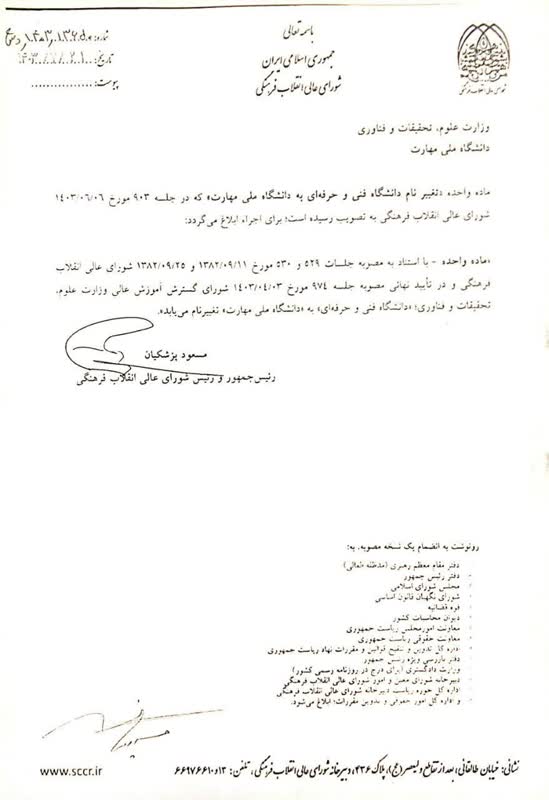 باسمه تعالی
جمهوری اسلامی ایران
شورای عالی انقلاب فرهنگی
شماره:
تاریخ:
پیوست:
وزارت علوم، تحقیقات و فناوری
دانشگاه ملی مهارت
ماده واحده «تغییر نام دانشگاه فنی و حرفه‌ای به دانشگاه ملی مهارت» که در جلسه ۹۰۳ مورخ ۱۴۰۳/۰۶/۰۶
شورای عالی انقلاب فرهنگی به تصویب رسیده است؛ برای اجراء ابلاغ می‌گردد:
«ماده واحده - با استناد به مصوبه جلسات ۵۲۹ و ۵۳۰ مورخ ۱۳۸۲/۰۹/۱۱ و ۱۳۸۲/۰۹/۲۵ شورای عالی انقلاب
فرهنگی و در تأیید نهائی مصوبه جلسه ۹۷۴ مورخ ۱۴۰۳/۰۴/۰۳ شورای گسترش آموزش عالی وزارت علوم،
تحقیقات و فناوری؛ «دانشگاه فنی و حرفه‌ای» به «دانشگاه ملی مهارت» تغییرنام می‌یابد».
مسعود پزشکیان
رئیس‌جمهور و رئیس شورای عالی انقلاب فرهنگی
رونوشت به انضمام یک نسخه مصوبه، به:
- دفتر مقام معظم رهبری (مدظله العالی)
- دفتر رئیس جمهور
- مجلس شورای اسلامی
- شورای نگهبان قانون اساسی
- قوه قضائیه
- دیوان محاسبات کشور
- معاونت امورمجلس ریاست جمهوری
- معاونت حقوقی ریاست جمهوری
- اداره کل تدوین و تنقیح قوانین و مقررات نهاد ریاست جمهوری
- دفتر بازرسی ویژه رئیس جمهور
- وزارت دادگستری (برای درج در روزنامه رسمی کشور)
- دبیرخانه شورای معین و امور شورای عالی انقلاب فرهنگی
- اداره کل حوزه ریاست دبیرخانه شورای عالی انقلاب فرهنگی
- و اداره کل امور حقوقی و تدوین مقررات؛ ابلاغ می‌شود.
نشانی: خیابان طالقانی، بعد از تقاطع ولیعصر (عج)، پلاک ۴۳۶، دبیرخانه شورای عالی انقلاب فرهنگی، تلفن: ۱۳و۶۶۹۷۶۶۱۰
www.sccr.ir